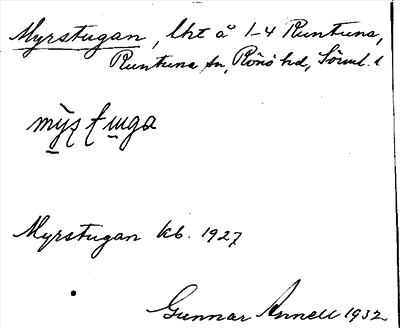 Myrstugan, lht å 1-4 Runtuna,
Runtuna sn, Rönö hd, Söml. l
Myrstugan kb. 1927
Gunnar Annell 1932